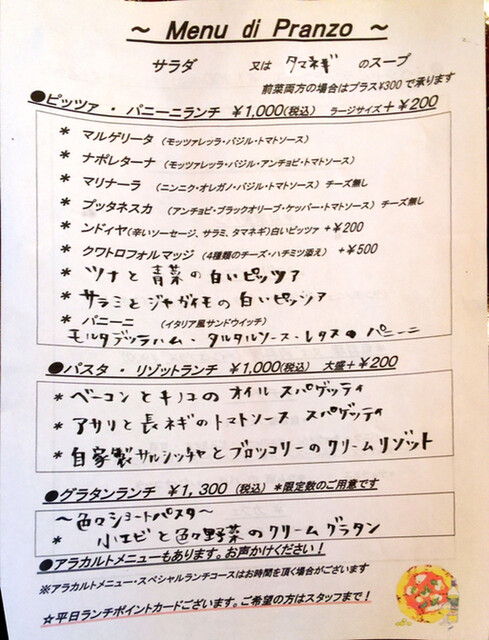 ～ Menu di Pranzo ～
サラダ 又は タマネギ のスープ
前菜両方の場合はプラス¥300で承ります
●ピッツァ ・ パニーニランチ ￥1,000(税込) ラージサイズ＋￥200
* マルゲリータ （モッツァレッラ・バジル・トマトソース）
* ナポレターナ （モッツァレッラ・バジル・アンチョビ・トマトソース）
* マリナーラ （ニンニク・オレガノ・バジル・トマトソース） チーズ無し
* プッタネスカ （アンチョビ・ブラックオリーブ・ケッパー・トマトソース） チーズ無し
* ンドィヤ（辛いソーセージ、サラミ、タマネギ）白いピッツァ ＋¥200
* クワトロフォルマッジ （4種類のチーズ・ハチミツ添え） ＋¥500
* ツナと青菜の白いピッツァ
* サラミとジャガイモの白いピッツァ
* パニーニ （イタリア風サンドウィッチ）
モルタデッラハム・タルタルソース・レタスのパニーニ
●パスタ ・ リゾットランチ ￥1,000(税込) 大盛＋￥200
* ベーコンとキノコのオイルスパゲッティ
* アサリと長ネギのトマトソース スパゲッティ
* 自家製サルシッチャとブロッコリーのクリームリゾット
●グラタンランチ ￥1,300 (税込) *限定数のご用意です
～色々ショートパスタ～
* 小エビと色々野菜のクリームグラタン
●アラカルトメニューもあります。お声かけください！
※アラカルトメニュー・スペシャルランチコースはお時間を頂く場合がございます
☆平日ランチポイントカードございます。ご希望の方はスタッフまで！